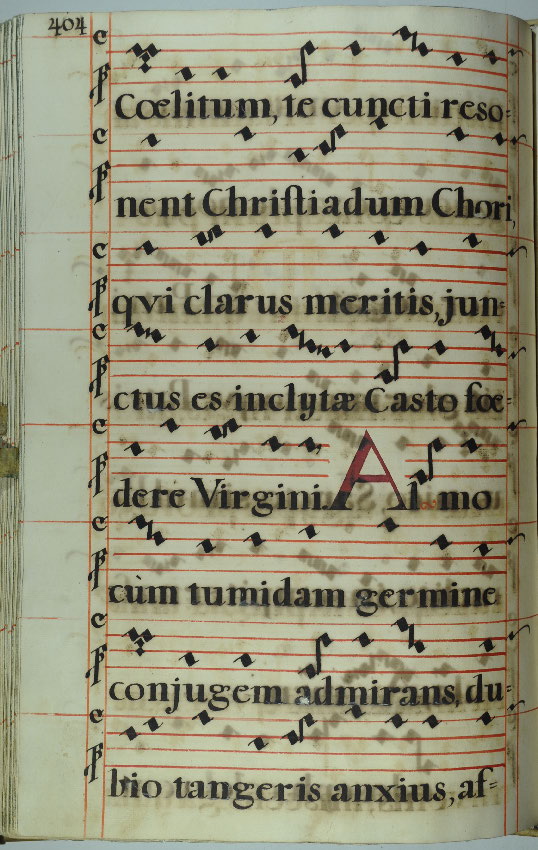 404
Cœlitum, te cuncti reso-
nent Chriſtiadum Chori,
qvi clarus meritis, jun-
ctus es inclytæ Casto fœ-
dere Virgini. Al mo
cùm tumidam germine
conjugem admirans, du-
bio tangeris anxius, af-